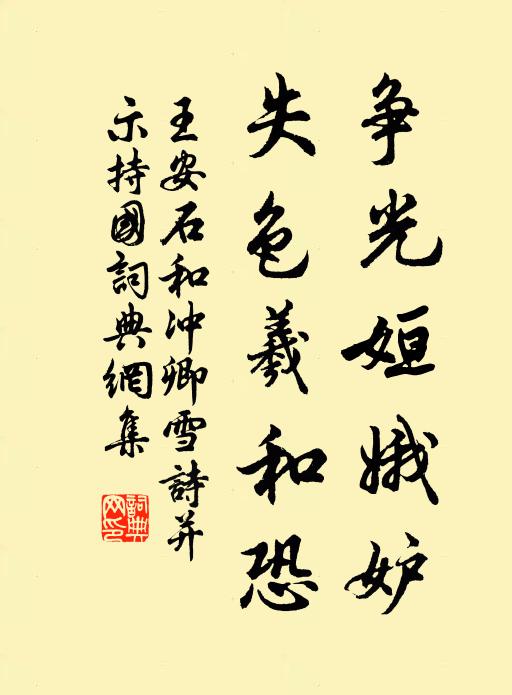 争光姮娥妒
失色羲和恐
王安石和冲卿雪詩并
示持國詞典網集
詞典
网印